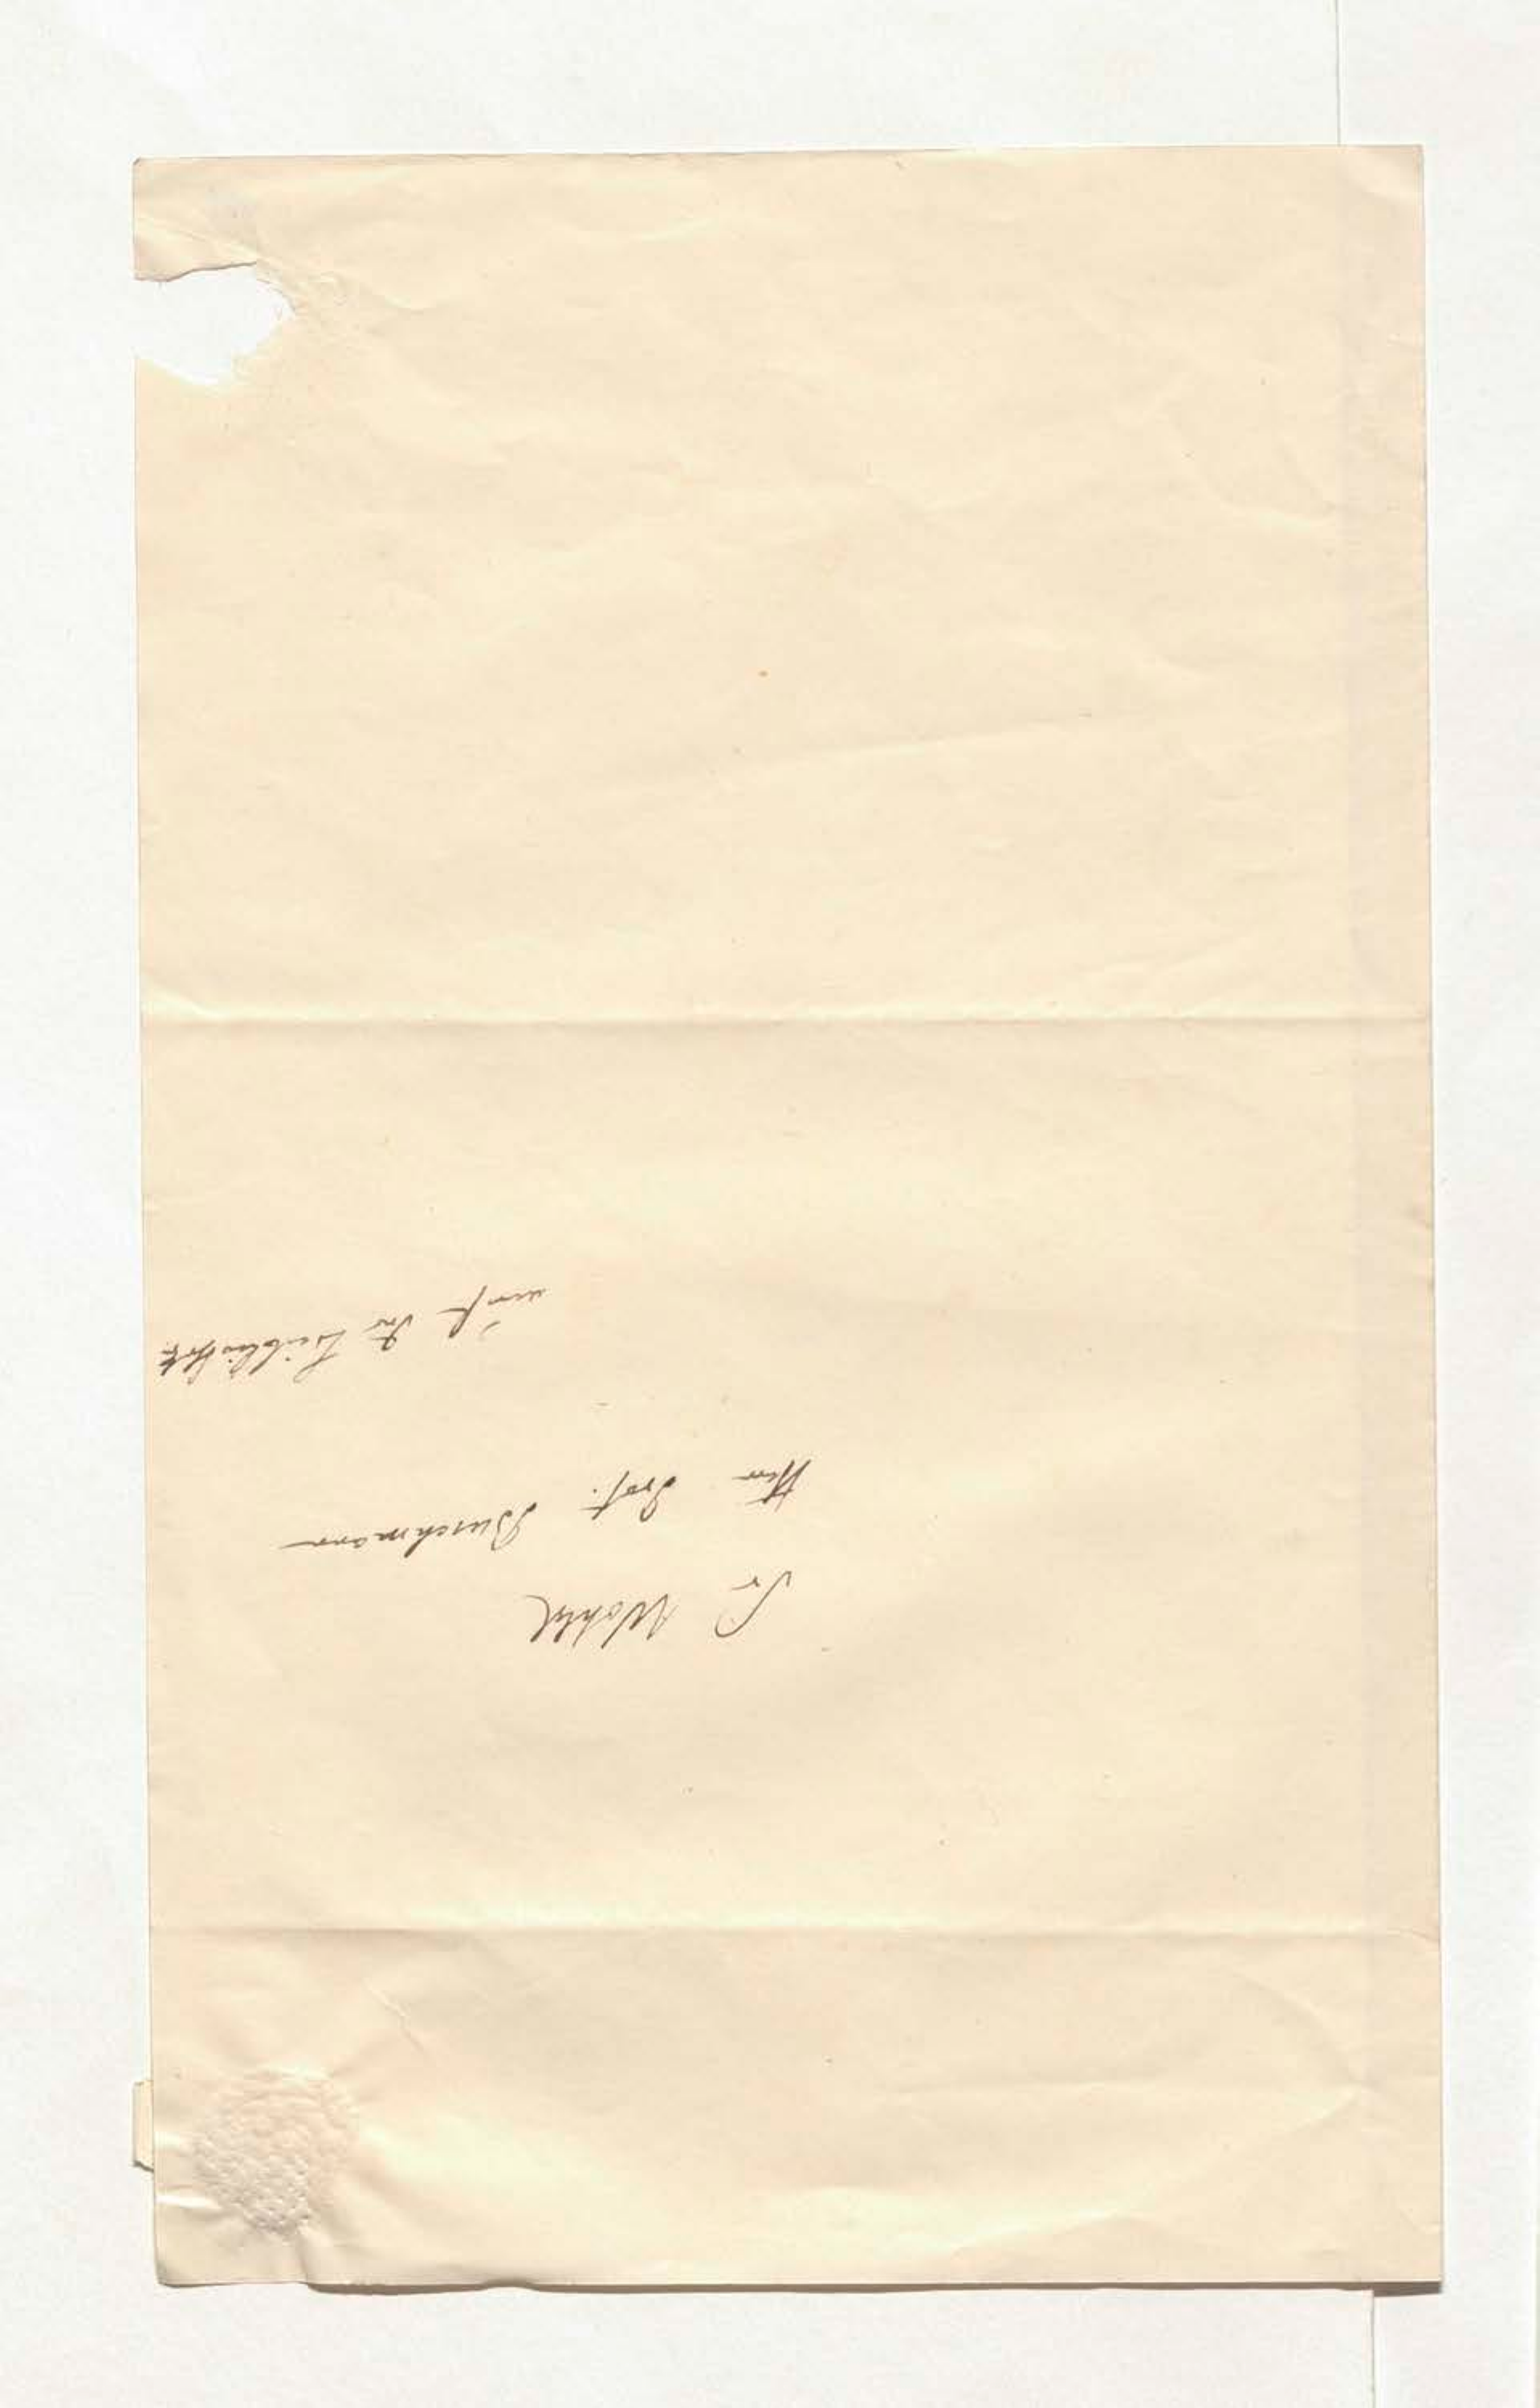 Sr Wohlg
Herr Prof. Buschmann
auf der Bibliothek